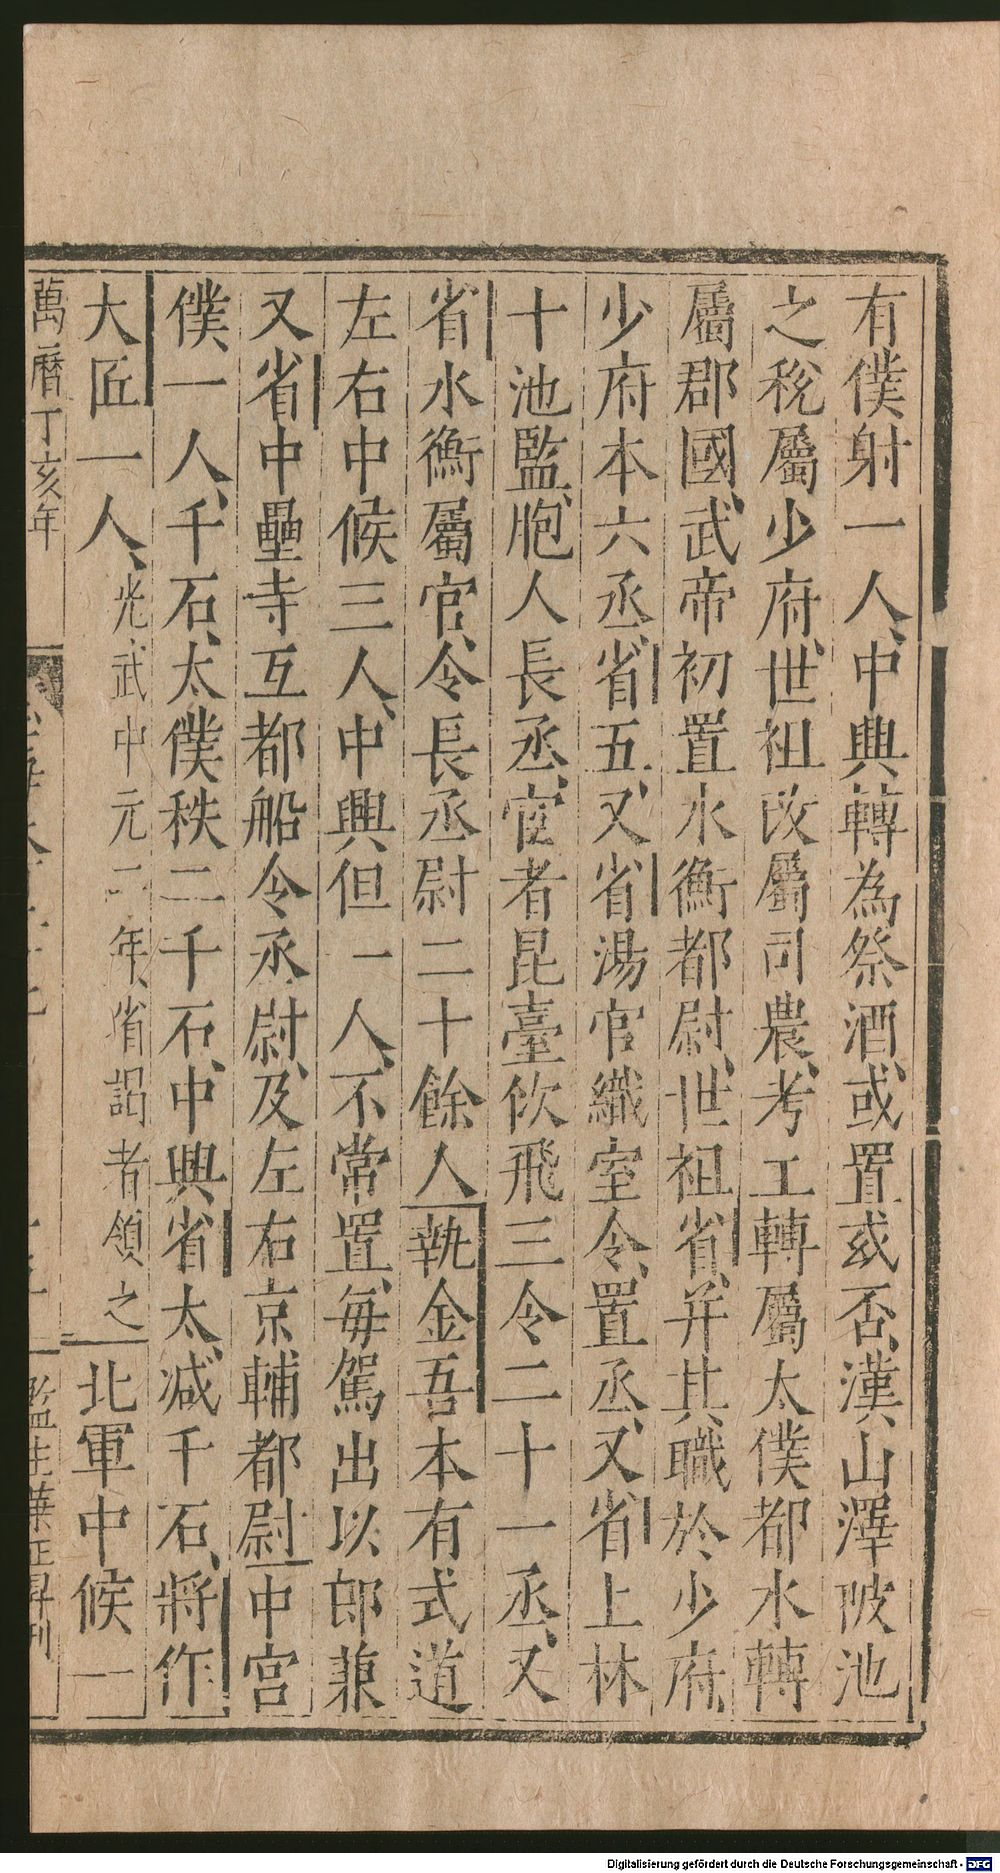 有僕射一人、中興轉為祭酒、或置或否、漢山澤陂池
之稅屬少府、世祖改屬司農、考工轉屬太僕都水轉
屬郡國、武帝初置水衡都尉、世祖省、并其職於少府、
少府本六丞、省五、又省湯官織室令、置丞、又省上林
十池監、胞人長丞、宦者昆臺佽飛三令二十一丞、又
省水衡屬官、令長丞尉二十餘人執金吾本有式道
左右中候三人、中興但一人、不常置、每駕出以郎兼
又省中壘寺互都船令丞尉、及左右京輔都尉中宮
僕一人、千石、太僕秩二千石、中興省太、減千石、將作
大匠一人、光武中元二年、省謁者領之北軍中候一
萬曆丁亥年
監生葉正昇刊
Digitalisierung gefördert durch die Deutsche Forschungsgemeinschaft - DFG